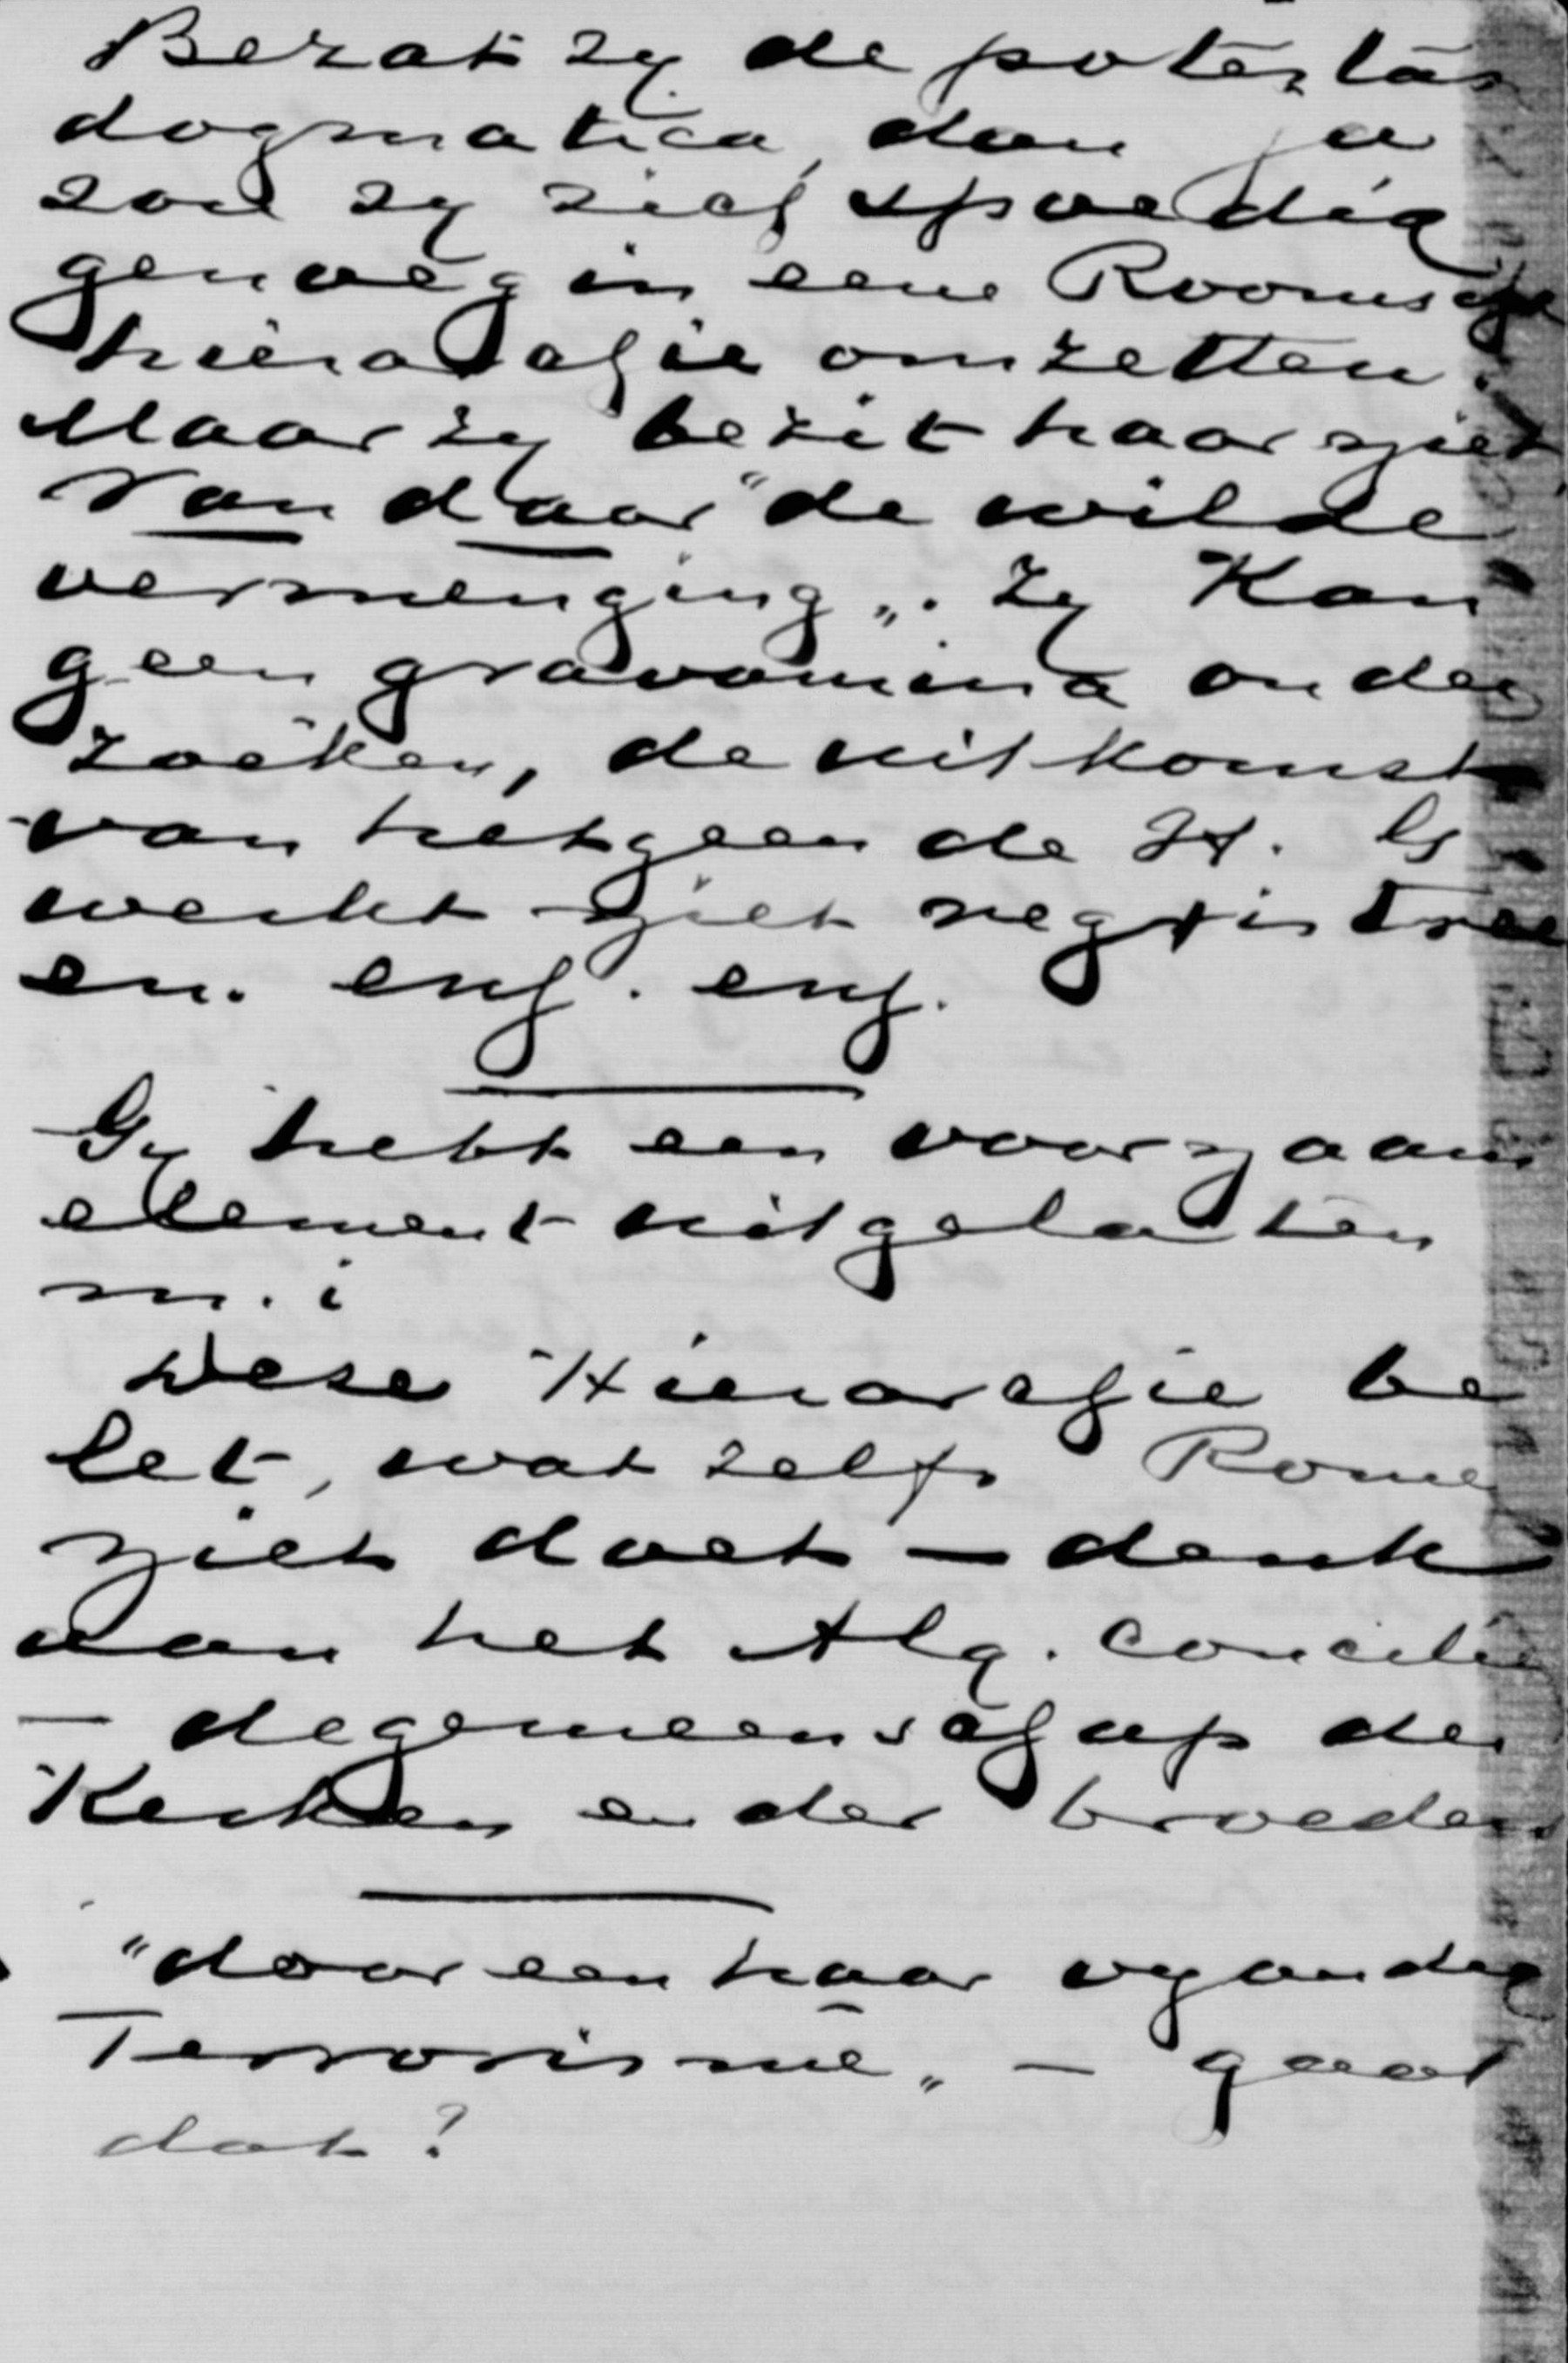 Bezat zy de potestas
dogmatica, dan ja
zou zy zich spoedig
genoeg in eene Roomsche
hierarchie omzetten.
Maar zy bezit haar niet
Van daar "de wilde
vermenging„. Zy kan
geen gravamina onder
zoeken, de uitkomst
van hetgeen de H. Gs
werkt niet registree
en. enz. enz.
Gy hebt een voornaam
element uitgelaten
n. i
Deze Hierarchie be
let, wat zelfs Rome
niet doet — denk
aan het Alg. Concilie
— de gemeenschap der
Kerken en der broeders
"door een haar vyandig
Terrorisme„ — gaat
dat?